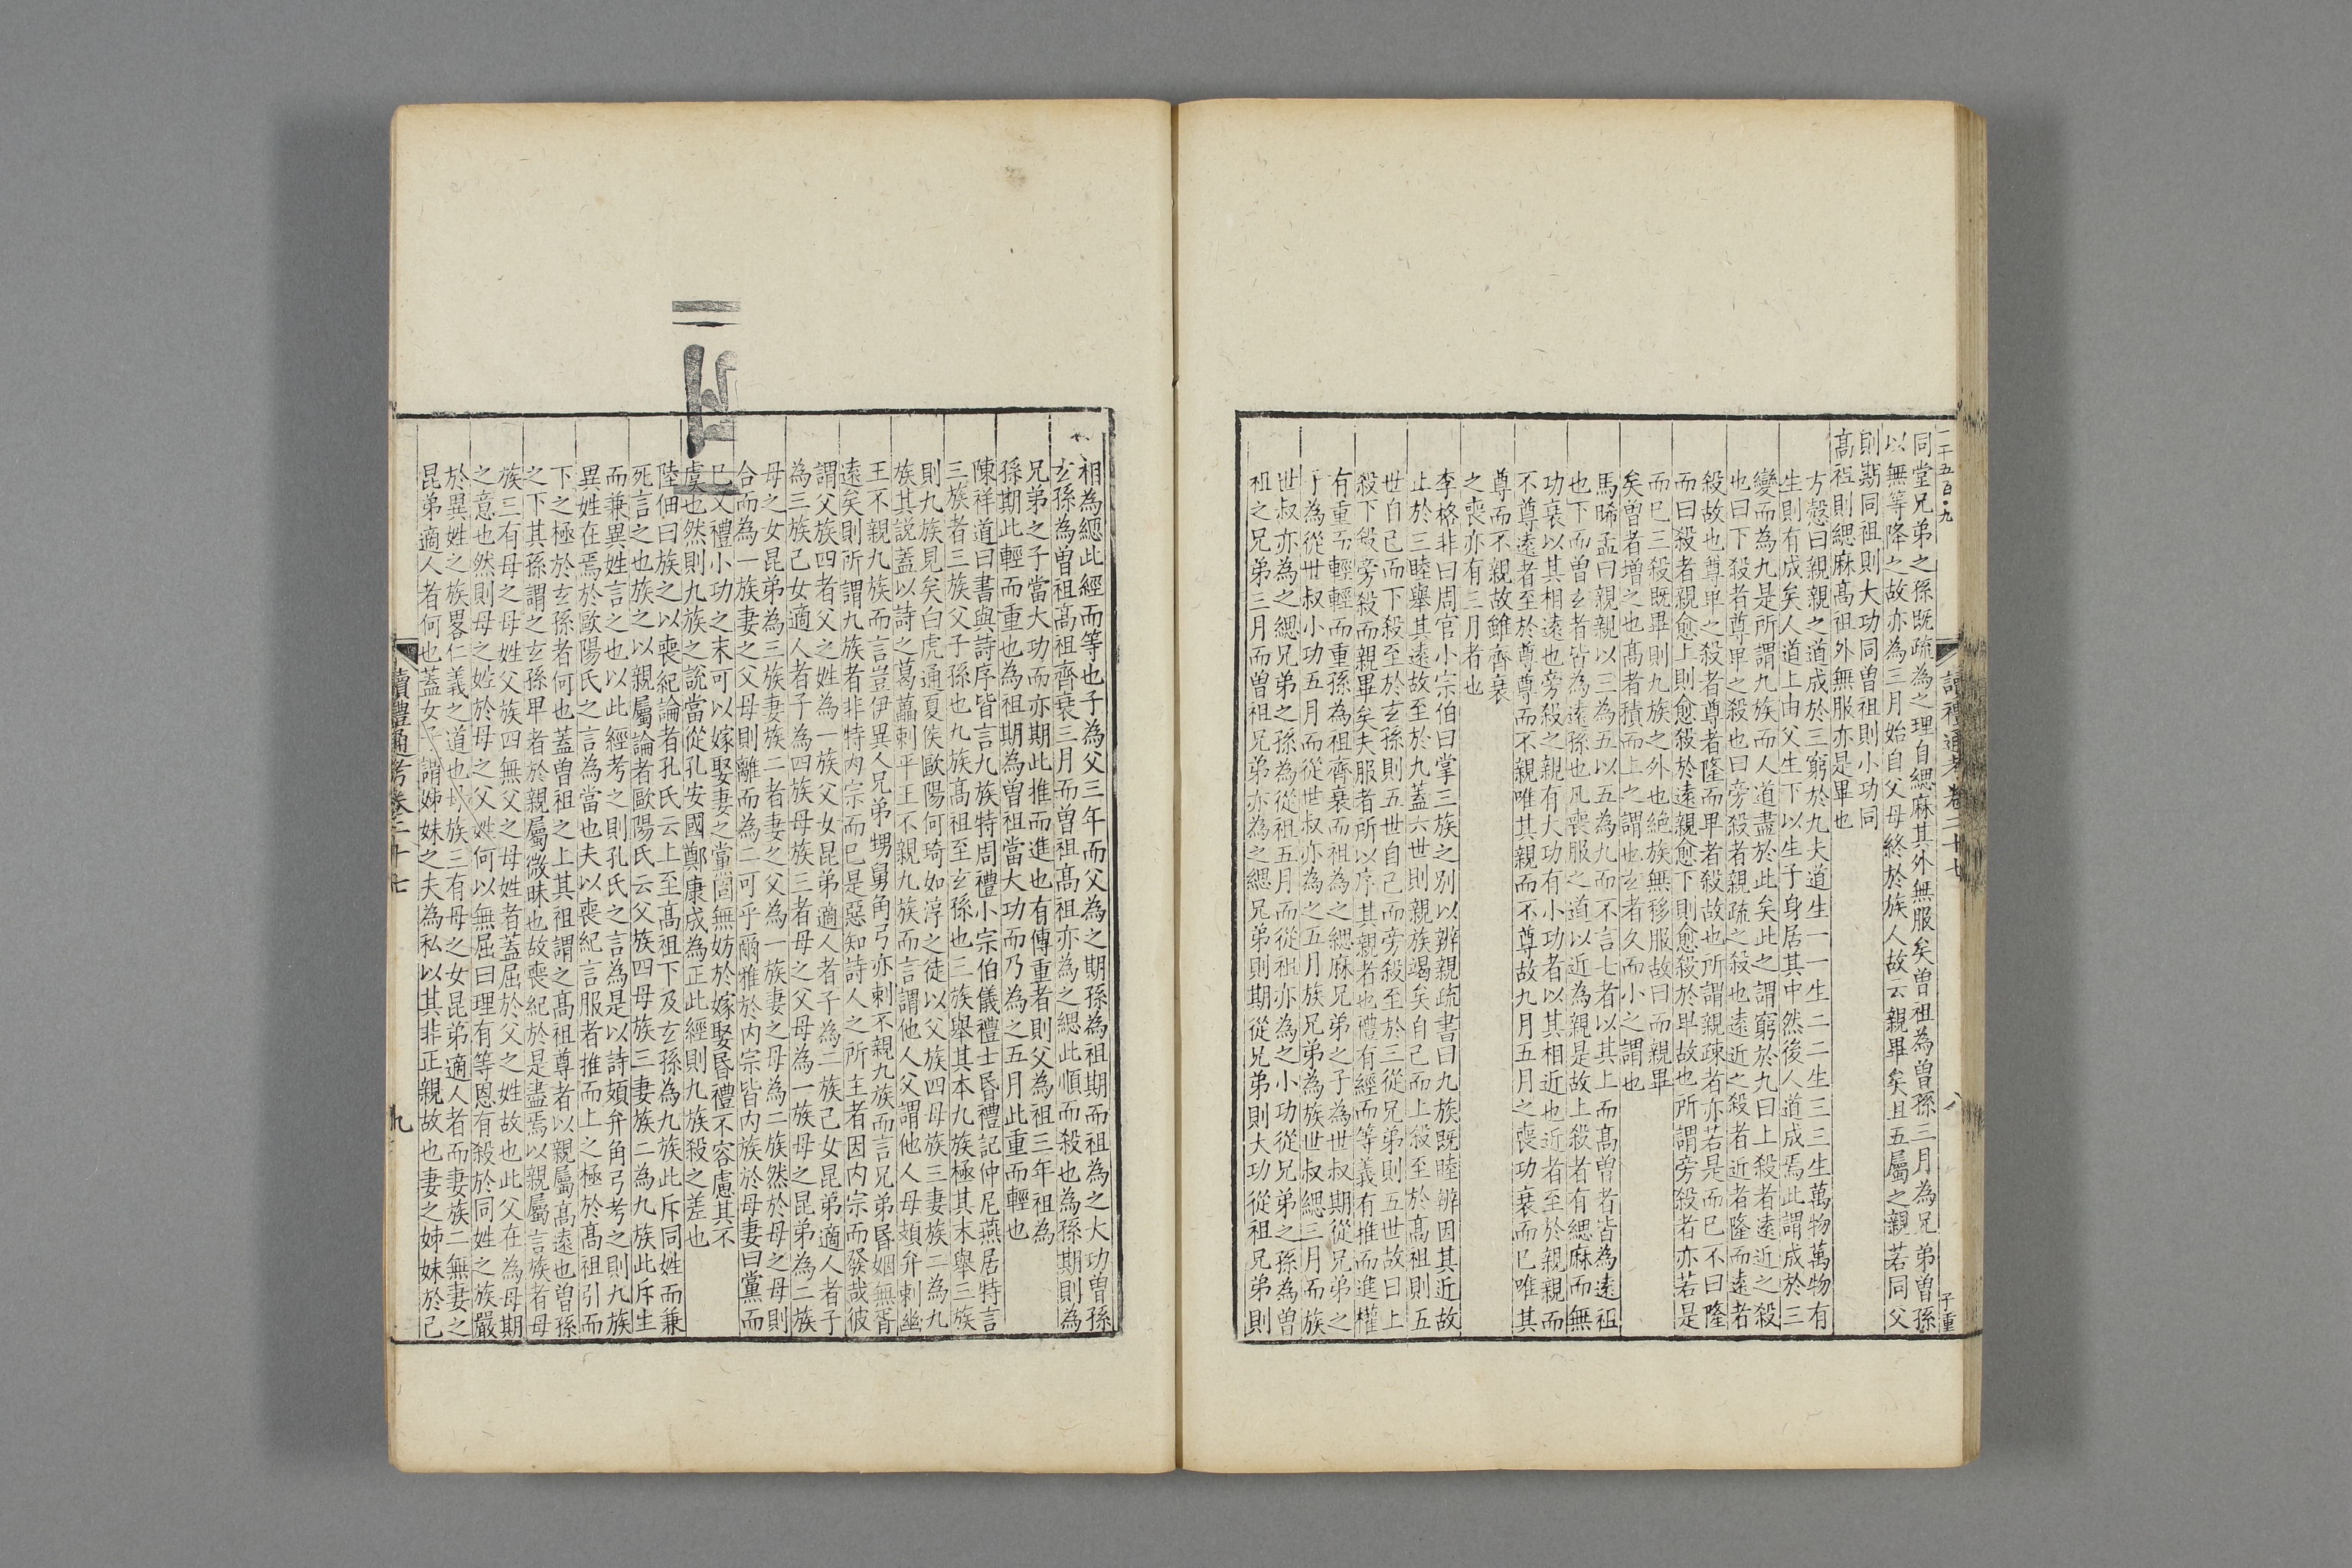 二千五百九
同堂兄弟之孫既疏為之理自緦麻其外無服矣曽祖為曽孫三月為兄弟曽孫
以無等降之故亦為三月始自父母終於族人故云親畢矣且五屬之親若同父
則期同祖則大功同曽祖則小功同
髙祖則緦麻髙祖外無服亦是畢也
方慤曰親親之道成於三窮於九夫道生一一生二二生三三生萬物萬物有
生則有成矣人道上由父生下以生子身居其中然後人道成焉此謂成於三
變而為九是所謂九族而人道盡於此矣此之謂窮於九曰上殺者逺近之殺
也曰下殺者尊卑之殺也曰旁殺者親疏之殺也逺近之殺者近者隆而逺者
殺故也尊卑之殺者尊者隆而卑者殺故也所謂親疎者亦若是而已不曰隆
而曰殺者親愈上則愈殺於逺親愈下則愈殺於卑故也所謂旁殺者亦若是
而已三殺既畢則九族之外也絶族無移服故曰而親畢
矣曽者增之也髙者積而上之謂也玄者久而小之謂也
馬晞孟曰親親以三為五以五為九而不言七者以其上而髙曽者皆為逺祖
也下而曽玄者皆為逺孫也凡喪服之道以近為親是故上殺者有緦麻而無
功衰以其相逺也旁殺之親有大功有小功者以其相近也近者至於親親而
不尊逺者至於尊尊而不親唯其親而不尊故九月五月之喪功衰而已唯其
尊而不親故雖齊衰
之喪亦有三月者也
李格非曰周官小宗伯曰掌三族之別以辨親疏書曰九族既睦辨因其近故
止於三睦舉其逺故至於九蓋六世則親族竭矣自己而上殺至於髙祖則五
世自己而下殺至於玄孫則五世自己而旁殺至於三從兄弟則五世故曰上
殺下殺旁殺而親畢矣夫服者所以序其親者也禮有經而等義有推而進權
有重而輕輕而重孫為祖齊衰而祖為之緦麻兄弟之子為世叔期從兄弟之
子為從世叔小功五月而從世叔亦為之五月族兄弟為族世叔緦三月而族
世叔亦為之緦兄弟之孫為從祖五月而從祖亦為之小功從兄弟之孫為曽
祖之兄弟三月而曽祖兄弟亦為之緦兄弟則期從兄弟則大功從祖兄弟則
讀禮通考卷二十七
八
子重
相為緦此經而等也子為父三年而父為之期孫為祖期而祖為之大功曽孫
玄孫為曽祖髙祖齊衰三月而曽祖髙祖亦為之緦此順而殺也為孫期則為
兄弟之子當大功而亦期此推而進也有傳重者則父為祖三年祖為
孫期此輕而重也為祖期為曽祖當大功而乃為之五月此重而輕也
陳祥道曰書與詩序皆言九族特周禮小宗伯儀禮士昏禮記仲尼燕居特言
三族三族者父子孫也九族髙祖至玄孫也三族舉其本九族極其末舉三族
則九族見矣白虎通夏侯歐陽何琦如淳之徒以父族四母族三妻族二為九
族其説蓋以詩之葛藟刺平王不親九族而言謂他人父謂他人母頍弁刺幽
王不親九族而言豈伊異人兄弟甥舅角弓亦刺不親九族而言兄弟昏姻無胥
逺矣則所謂九族者非特内宗而已是惡知詩人之所主者因内宗而發哉彼
謂父族四者父之姓為一族父女昆弟適人者子為二族己女昆弟適人者子
為三族己女適人者子為四族母族三者母之父母為一族母之昆弟為二族
母之女昆弟為三族妻族二者妻之父為一族妻之母為二族然於母之母則
合而為一族妻之父母則離而為二可乎爾雅於内宗皆内族於母妻曰黨而
已又禮小功之末可以嫁娶妻之黨固無妨於嫁娶昏禮不容慮其不
虞也然則九族之說當從孔安國鄭康成為正此經則九族殺之差也
陸佃曰族之以喪紀論者孔氏云上至髙祖下及玄孫為九族此斥同姓而兼
死言之也族之以親屬論者歐陽氏云父族四母族三妻族二為九族此斥生
而兼異姓言之也以此經考之則孔氏之言為是以詩頍弁角弓考之則九族
異姓在焉於歐陽氏之言為當也夫以喪紀言服者推而上之極於髙祖引而
下之極於玄孫者何也蓋曽祖之上其祖謂之髙祖尊者以親屬髙逺也曽孫
之下其孫謂之玄孫卑者於親屬微昧也故喪紀於是盡焉以親屬言族者母
族三有母之母姓父族四無父之母姓者蓋屈於父之姓故也此父在為母期
之意也然則母之姓於母之父姓何以無屈曰理有等恩有殺於同姓之族嚴
於異姓之族畧仁義之道也母族三有母之女昆弟適人者而妻族二無妻之
昆弟適人者何也蓋女子謂姊妹之夫為私以其非正親故也妻之姊妹於己
讀禮通考卷二十七
九